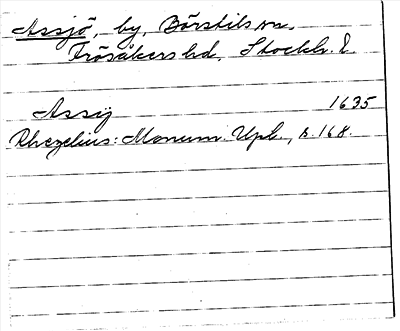 Assjö, by, Börstils sn.
Frösåkers hd, Stockh. l.
Assij 1635
Rhezelius: Monum. Upl., s. 168.